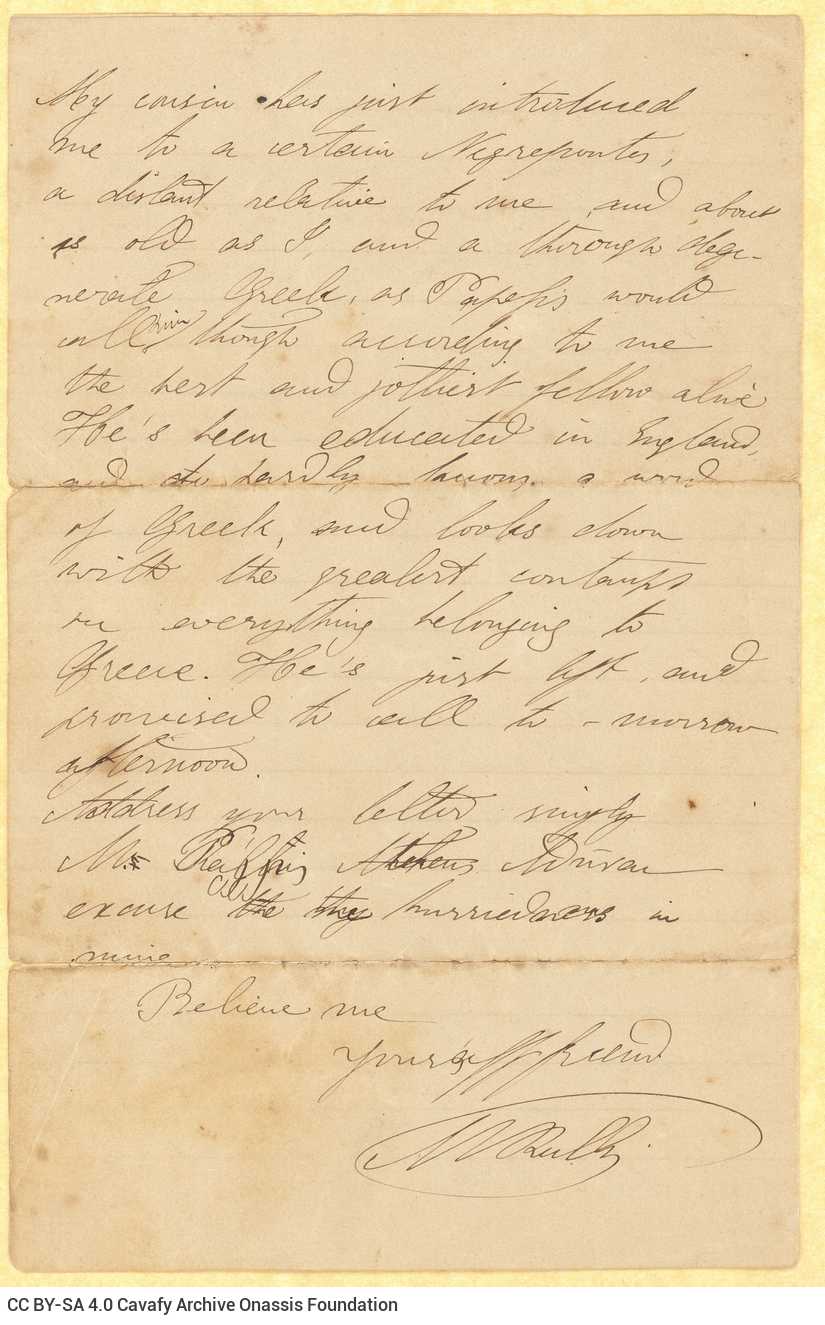 My cousin has just introduced
me to a certain Negrepontis,
a distant relative to me, and about
as old as I, and a thorough dege-
nerate Greek, as Papefis would
call him, though according to me
the best and jolliest fellow alive
He's been educated in England,
and hardly knows a word
of Greek, and looks down
with the greatest contempt
on everything belonging to
Greece. He's just left, and
promised to call to-morrow
afternoon.
Address your letter simply
Mr Ralli Athens
excuse all the hurriedness in
mine
Believe me
Yours aff friend
M Ralli
CC BY-SA 4.0 Cavafy Archive Onassis Foundation